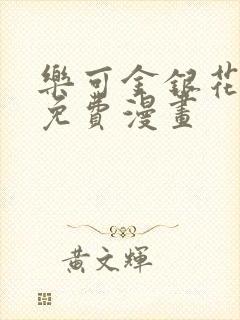 樂可金銀花
免費漫畫
黃文輝